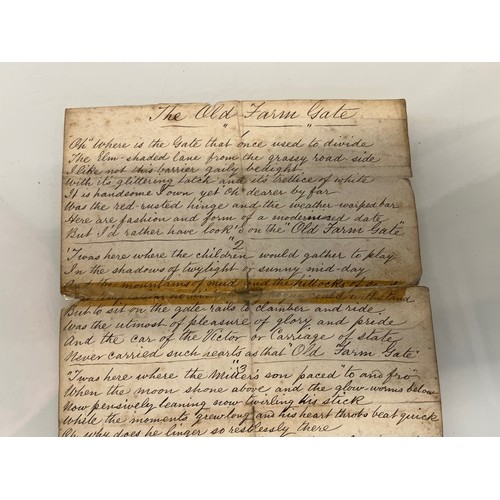 The Old Farm Gate
1
"Oh" Where is the Gate that once used to divide
The Elm-shaded lane from the grassy road-side
I like not this barrier gaily bedight
With its glittering latch and its trellice of white
It is handsome I own yet Oh dearer by far
Was the red-rusted hinge and the weather-warped bar
Here are fashion and form of a modernised date
But I'd rather have look'd on the "Old Farm Gate"
"2
'Twas here where the children would gather to play
In the shadows of twylight or sunny mid-day
And the mountains of mud and the hillocks of
But to sit on the gate rails to clamber and ride
Was the utmost of pleasure of glory and pride
And the car of the Victor or Carriage of state
Never carried such hearts as that "Old Farm Gate"
"3
'Twas here where the Miller's son paced to and fro
When the moon shone above and the glow-worms below
Now pensively leaning now twirling his stick
While the moments grew long and his heart throbs beat quick
Oh why does he linger so restlessly there